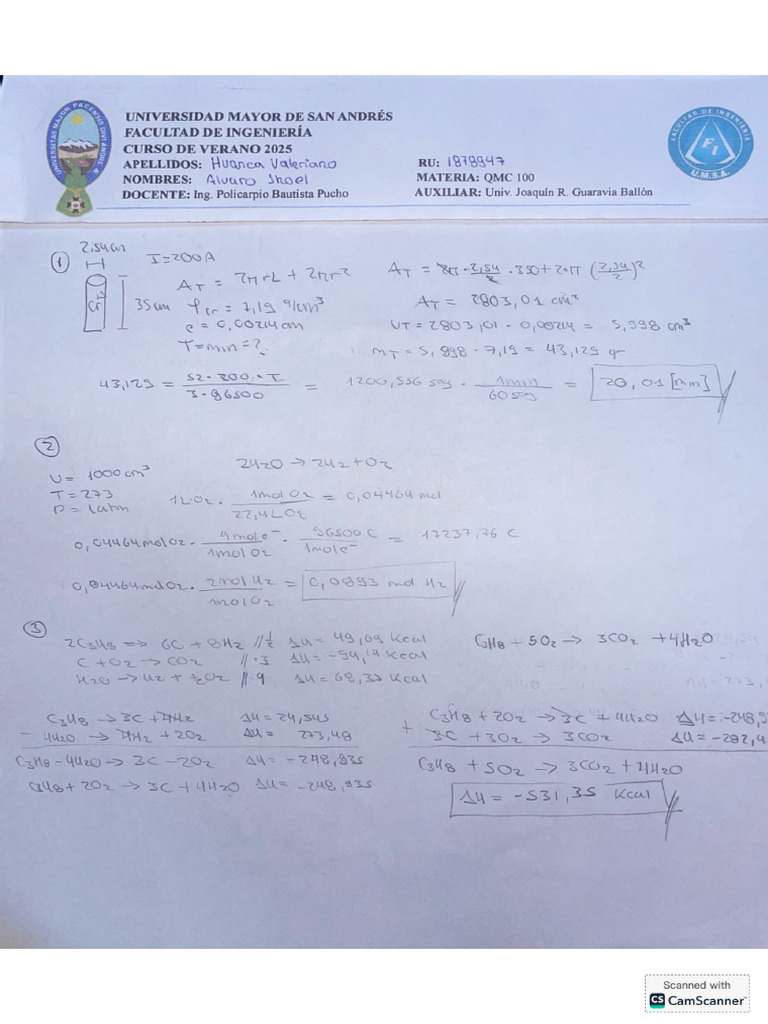 UNIVERSIDAD MAYOR DE SAN ANDRÉS
FACULTAD DE INGENIERÍA
CURSO DE VERANO 2025
APELLIDOS: Huanca Valeriano RU: 1878947
NOMBRES: Alvaro Jhoel MATERIA: QMC 100
DOCENTE: Ing. Policarpio Bautista Pucho AUXILIAR: Univ. Joaquín R. Guaravia Ballón
FACULTAD DE INGENIERIA
F I
U.M.S.A.
①
2,54cm
I=200A
Cr
35cm
A_T = 2πrL + 2πr²
ρ_cr = 7,19 g/cm³
e = 0,00214cm
T=min=?
A_T = 2803,01 cm²
VT = 2803,01 · 0,00214 = 5,998 cm³
m_T = 5,998 · 7,19 = 43,129 gr
= 1200,556 seg · 1min/60seg = 20,01 [min]
②
V = 1000cm³
T = 273
P = 1atm
2H2O → 2H2 + O2
1L O2 · 1mol O2/22,4L O2 = 0,04464 mol
0,04464mol O2 · 4mole⁻/1mol O2 · 96500 C/1mole⁻ = 17237,76 C
0,04464mol O2 · 2mol H2/1mol O2 = 0,0893 mol H2
③
2C3H8 => 6C + 8H2 //½ ΔH = 49,09 Kcal
C + O2 → CO2 //·3 ΔH = -94,14 Kcal
H2O → H2 + ½O2 //·4 ΔH = 68,37 Kcal
C3H8 + 5O2 → 3CO2 + 4H2O
C3H8 → 3C + 4H2 ΔH = 24,545
- 4H2O → 4H2 + 2O2 ΔH = 273,48
C3H8 - 4H2O → 3C - 2O2 ΔH = -248,935
C3H8 + 2O2 → 3C + 4H2O ΔH = -248,935
C3H8 + 2O2 → 3C + 4H2O ΔH = -248,9
+ 3C + 3O2 → 3CO2 ΔH = -282,4
C3H8 + 5O2 → 3CO2 + 4H2O
ΔH = -531,35 Kcal
Scanned with
CS CamScanner